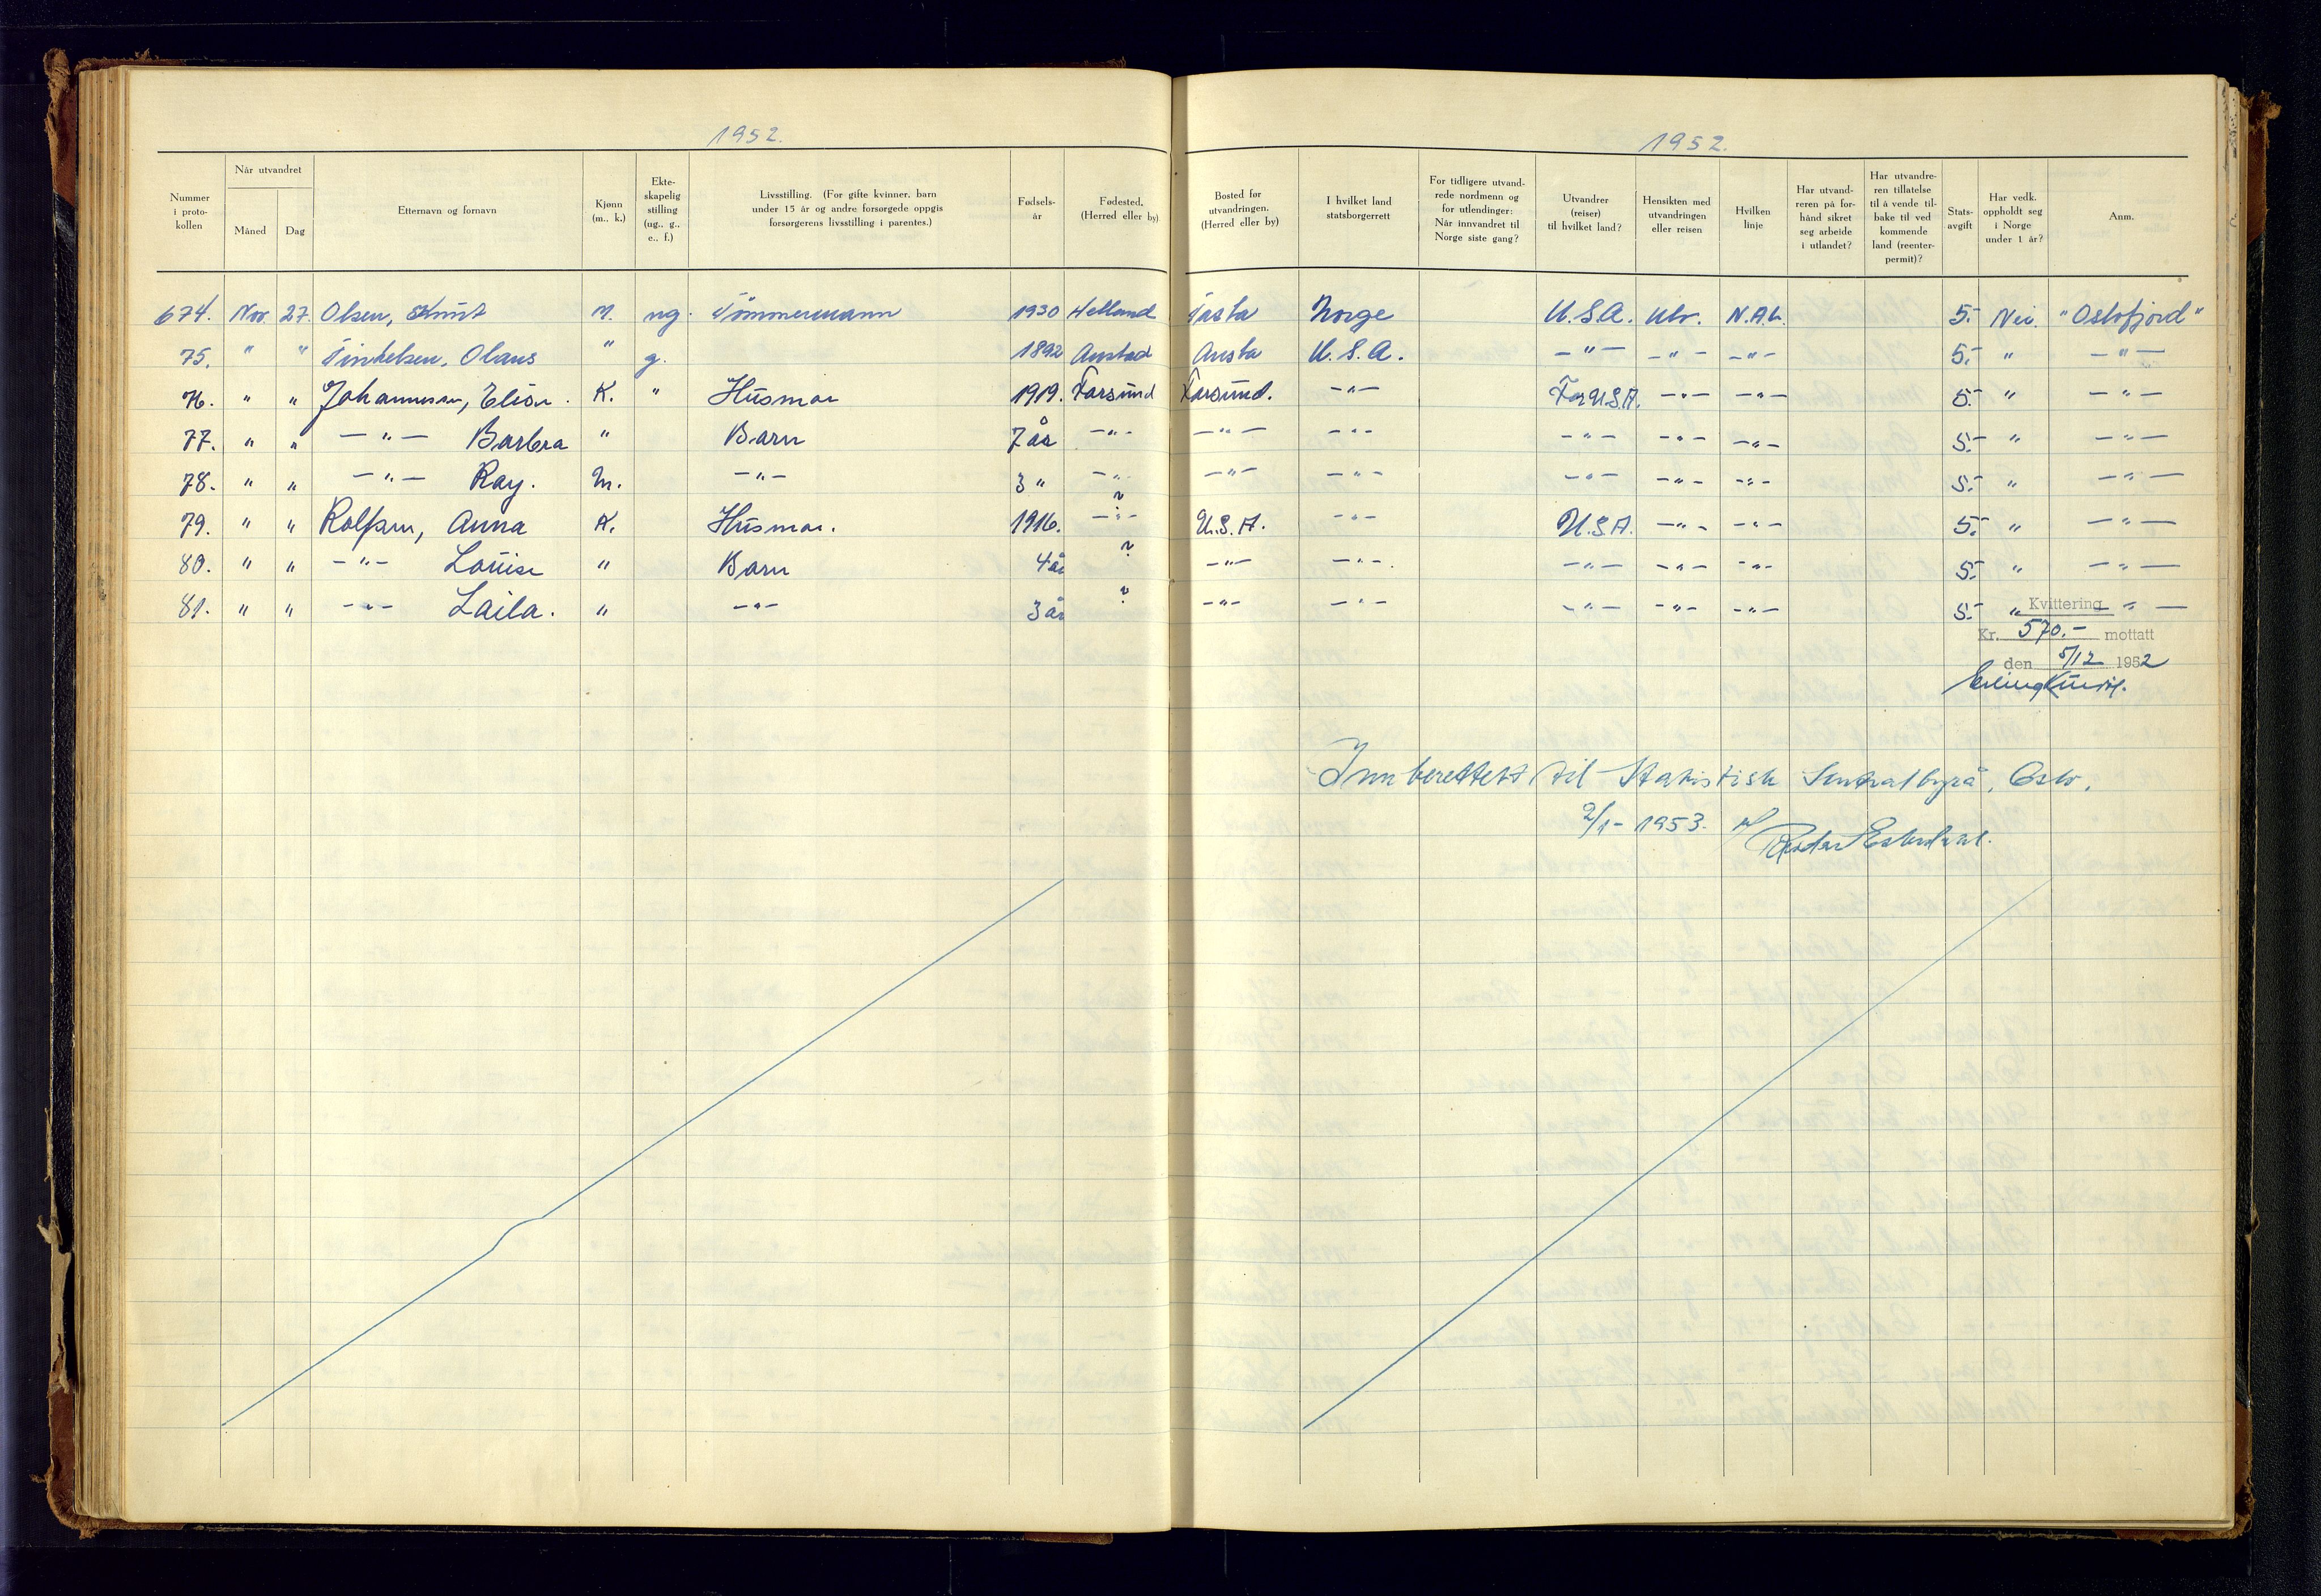 1952.
Nummer i proto-kollen | Når utvandret Måned Dag | Etternavn og fornavn | Kjønn (m., k.) | Ekte-skapelig stilling (ug., g., e., f.) | Livsstilling. (For gifte kvinner, barn under 15 år og andre forsørgede oppgis forsørgerens livsstilling i parentes.) | Fødsels-år | Fødested. (Herred eller by)
674. Nov. 27. Olsen, Knut M. ug. Tömmermann 1930 Helland
75. " " Olaus " g. 1892 Austad
76. " " Johannessen, K. " Husmor 1919. Farsund
77. " " —"— Barbra " Barn 7 år —"—
78. " " —"— Ray. M. —"— 3 " —"—
79. " " Rolfsen, Anna K. Husmor. 1916. —"— ?
80. " " —"— Louise " Barn 4 år ?
81. " " —"— Laila. " —"— 3 år ?
1952.
Bosted før utvandringen. (Herred eller by) | I hvilket land statsborgerrett | For tidligere utvand-rede nordmenn og for utlendinger: Når innvandret til Norge siste gang? | Utvandrer (reiser) til hvilket land? | Hensikten med utvandringen eller reisen | Hvilken linje | Har utvand-reren på for-hånd sikret seg arbeide i utlandet? | Har utvandre-ren tillatelse til å vende til-bake til ved kommende land (reenter-permit)? | Stats-avgift | Har vedk. oppholdt seg i Norge under 1 år? | Anm.
Norge U.S.A. Utv. N.A.L. 5.- Nei. "Oslofjord"
U.S.A. —"— —"— —"— 5.- " —"—
Farsund. —"— U.S.A. —"— —"— 5.- " —"—
—"— —"— —"— —"— —"— 5.- " —"—
—"— —"— —"— —"— —"— 5.- " —"—
U.S.A. —"— U.S.A. —"— —"— 5.- " —"—
—"— —"— —"— —"— —"— 5.- " —"—
—"— —"— —"— —"— —"— 5.- " —"—
Kvittering
Kr. 570.- mottatt
den 5/12 1952
Erling
Innberettet til Statistisk Sentralbyrå, Oslo.
2/1- 1953.